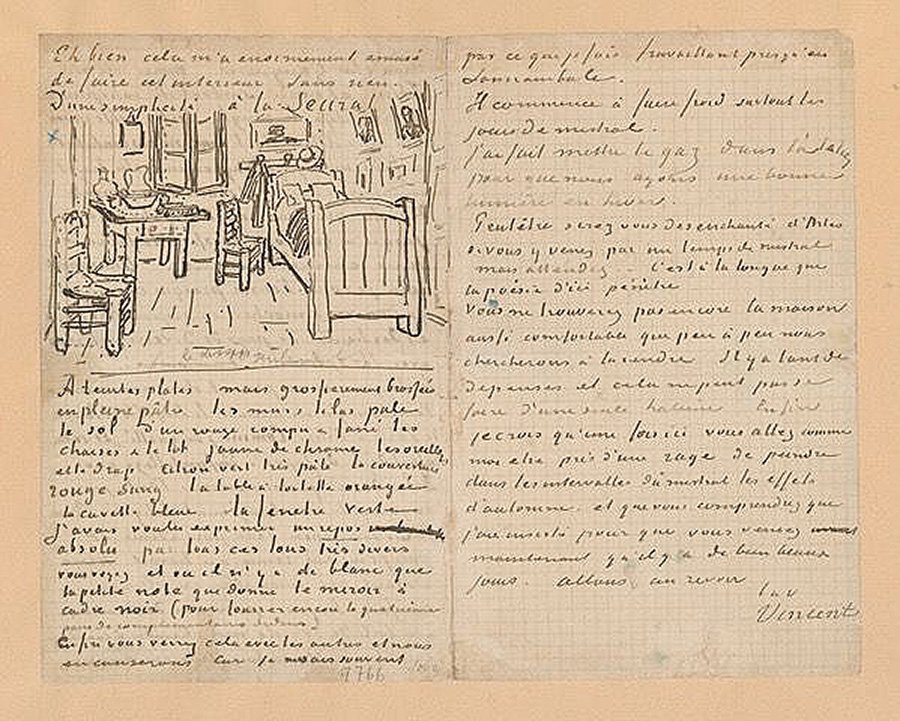 Eh bien cela m'a enormement amusé
de faire cet interieur sans rien.
D'une simplicité à la Seurat
A teintes plates mais grossierement brossées
en pleine pâte les murs lilas pale
le sol d'un rouge rompu & fané les
chaises & le lit jaune de chrome les oreillers
et le drap citron vert très pâle la couverture
rouge sang la table à toilette orangée
la cuvette bleue la fenetre verte
J'avais voulu exprimer un repos
absolu par tous ces tons très divers
vous voyez et où il n'y a de blanc que
la petite note que donne le miroir à
cadre noir (pour fourrer encore la quatrieme
paire de complementaires dedans)
Enfin vous verrez cela avec les autres et nous
en causerons car je ne sais souvent
7766
pas ce que je fais travaillant presqu'en
somnambule.
Il commence à faire froid surtout les
jours de mistral.
J'ai fait mettre le gaz dans l'atelier
pour que nous ayons une bonne
lumière en hiver.
Peutêtre serez vous desenchanté d'Arles
si vous y venez par un temps de mistral
mais attendez .. C'est à la longue que
la poésie d'ici pénètre
Vous ne trouverez pas encore la maison
aussi comfortable que peu à peu nous
chercherons à la rendre Il y a tant de
depenses et cela ne peut pas se
faire d'une seule haleine Enfin
je crois qu'une fois ici vous allez comme
moi etre pris d'une rage de peindre
dans les intervalles du mistral les effets
d'automne. et que vous comprendrez que
j'ai insisté pour que vous veniez
maintenant qu'il y a de bien beaux
jours. Allons, au revoir
t. à v.
Vincent